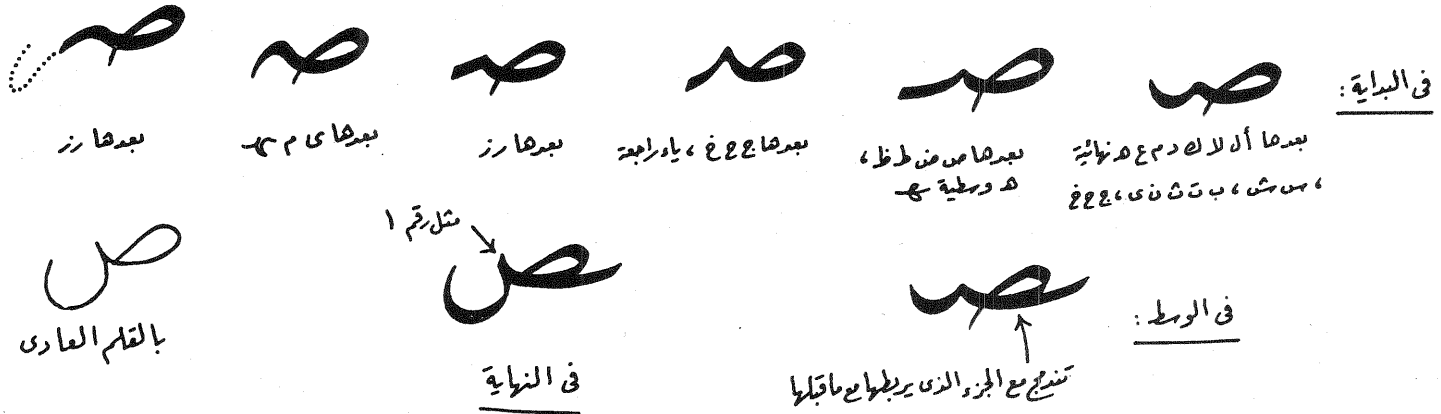 في البداية :
صـ صـ صـ صـ صـ صـ
بعدها أ ل لا ك د م ع ه نهائية
، س ش ، ب ت ث ن ى ، ج ح خ
بعدها ص ض ط ظ ،
ه وسطية ـهـ
بعدها ج ح خ ، ياء راجعة
بعدها ر ز
بعدها ى م ـهـ
بعدها ر ز
في الوسط :
ـصـ
تندمج مع الجزء الذى يربطها مع ما قبلها
مثل رقم ١
ـص
في النهاية
ص
بالقلم العادى